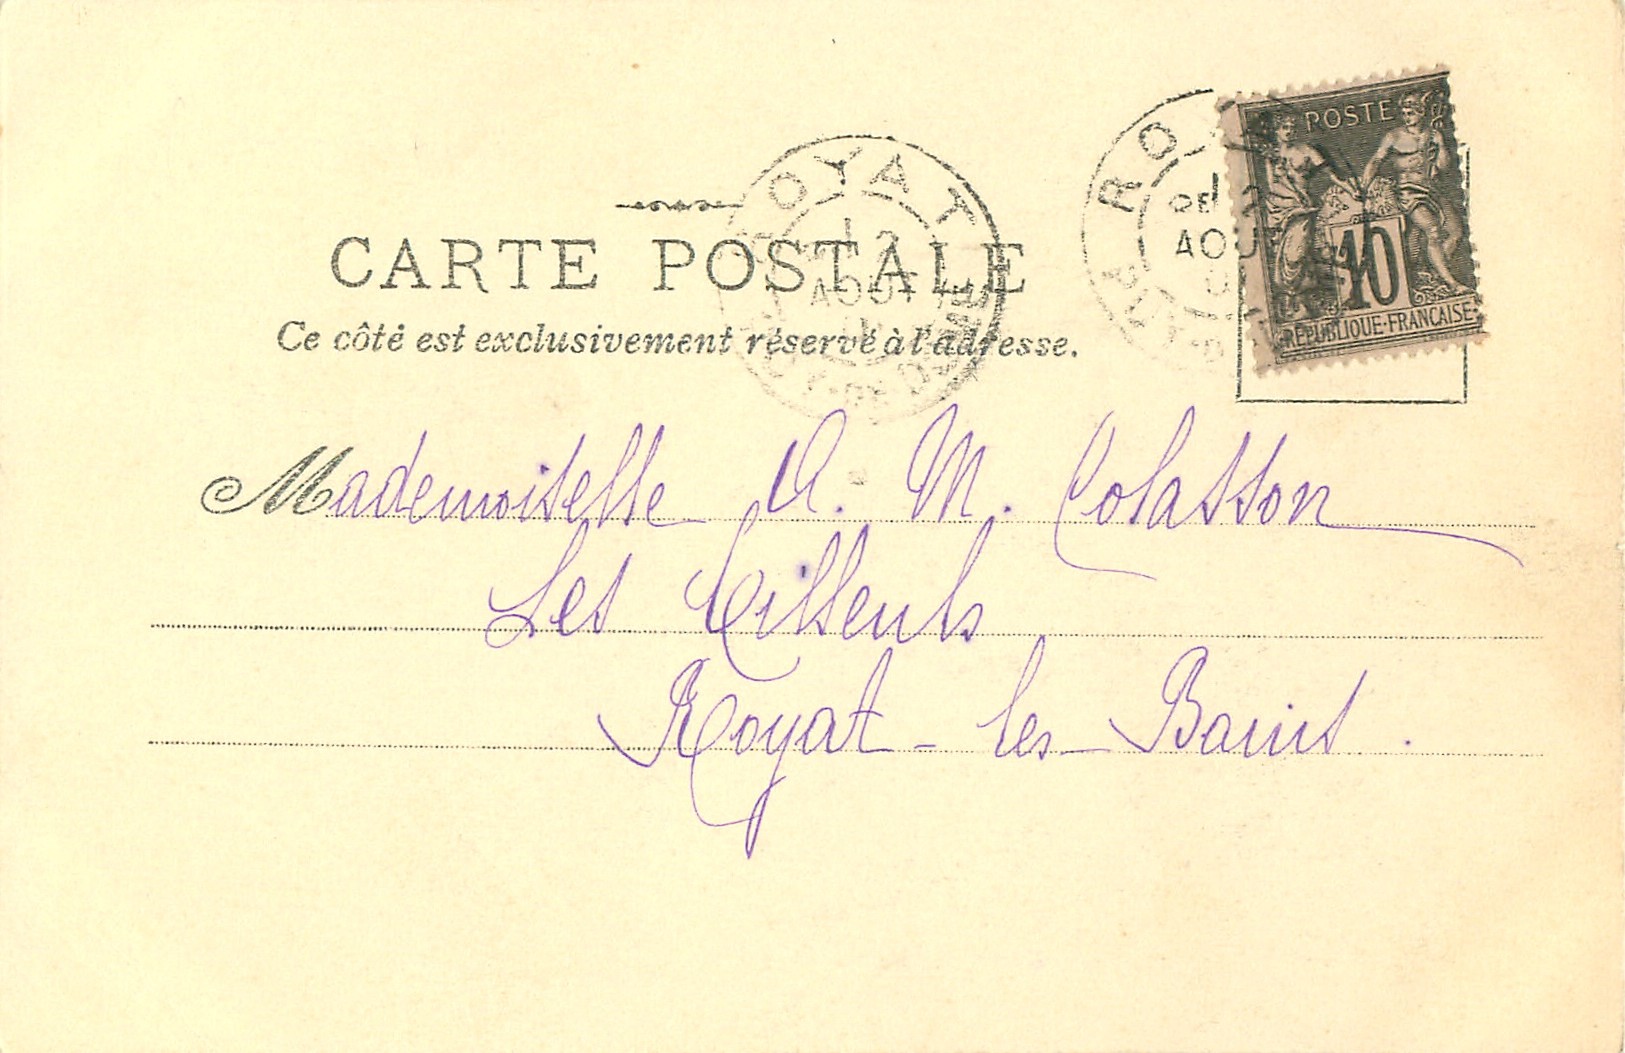 ROYAT
12
AOUT
PUY-DE-DOME
RO
AOU
POSTE
10
RÉPUBLIQUE-FRANÇAISE
CARTE POSTALE
Ce côté est exclusivement réservé à l'adresse.
Mademoiselle A. M. Colasson
Les Tilleuls
Royat-les-Bains.